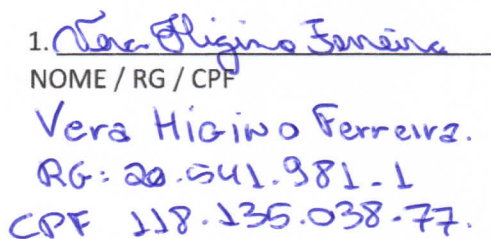 1. Vera Higino Ferreira
NOME / RG / CPF
Vera Higino Ferreira.
RG: 20.541.981-1
CPF 118.135.038-77.